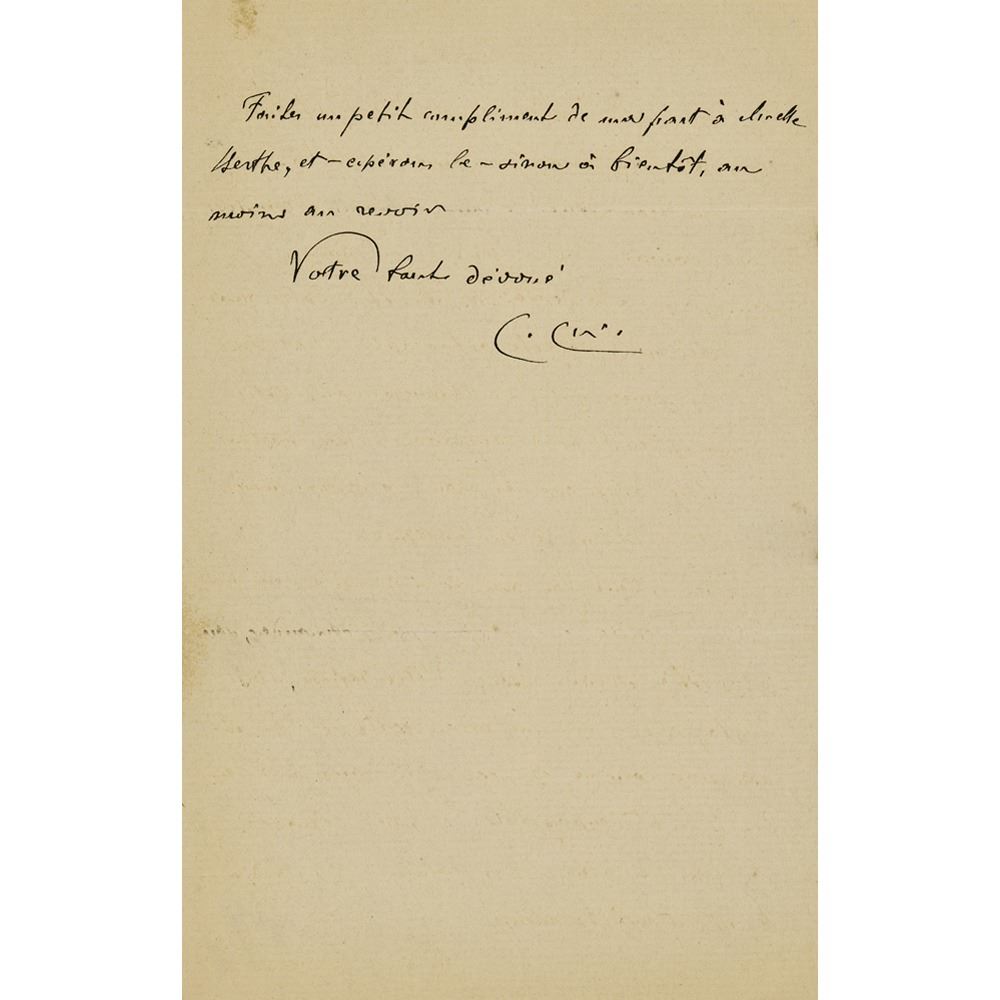 Faites un petit compliment de ma part à Melle
Berthe, et – espérons le – sinon à bientôt, au
moins au revoir
Votre tout dévoué
C. Cui.